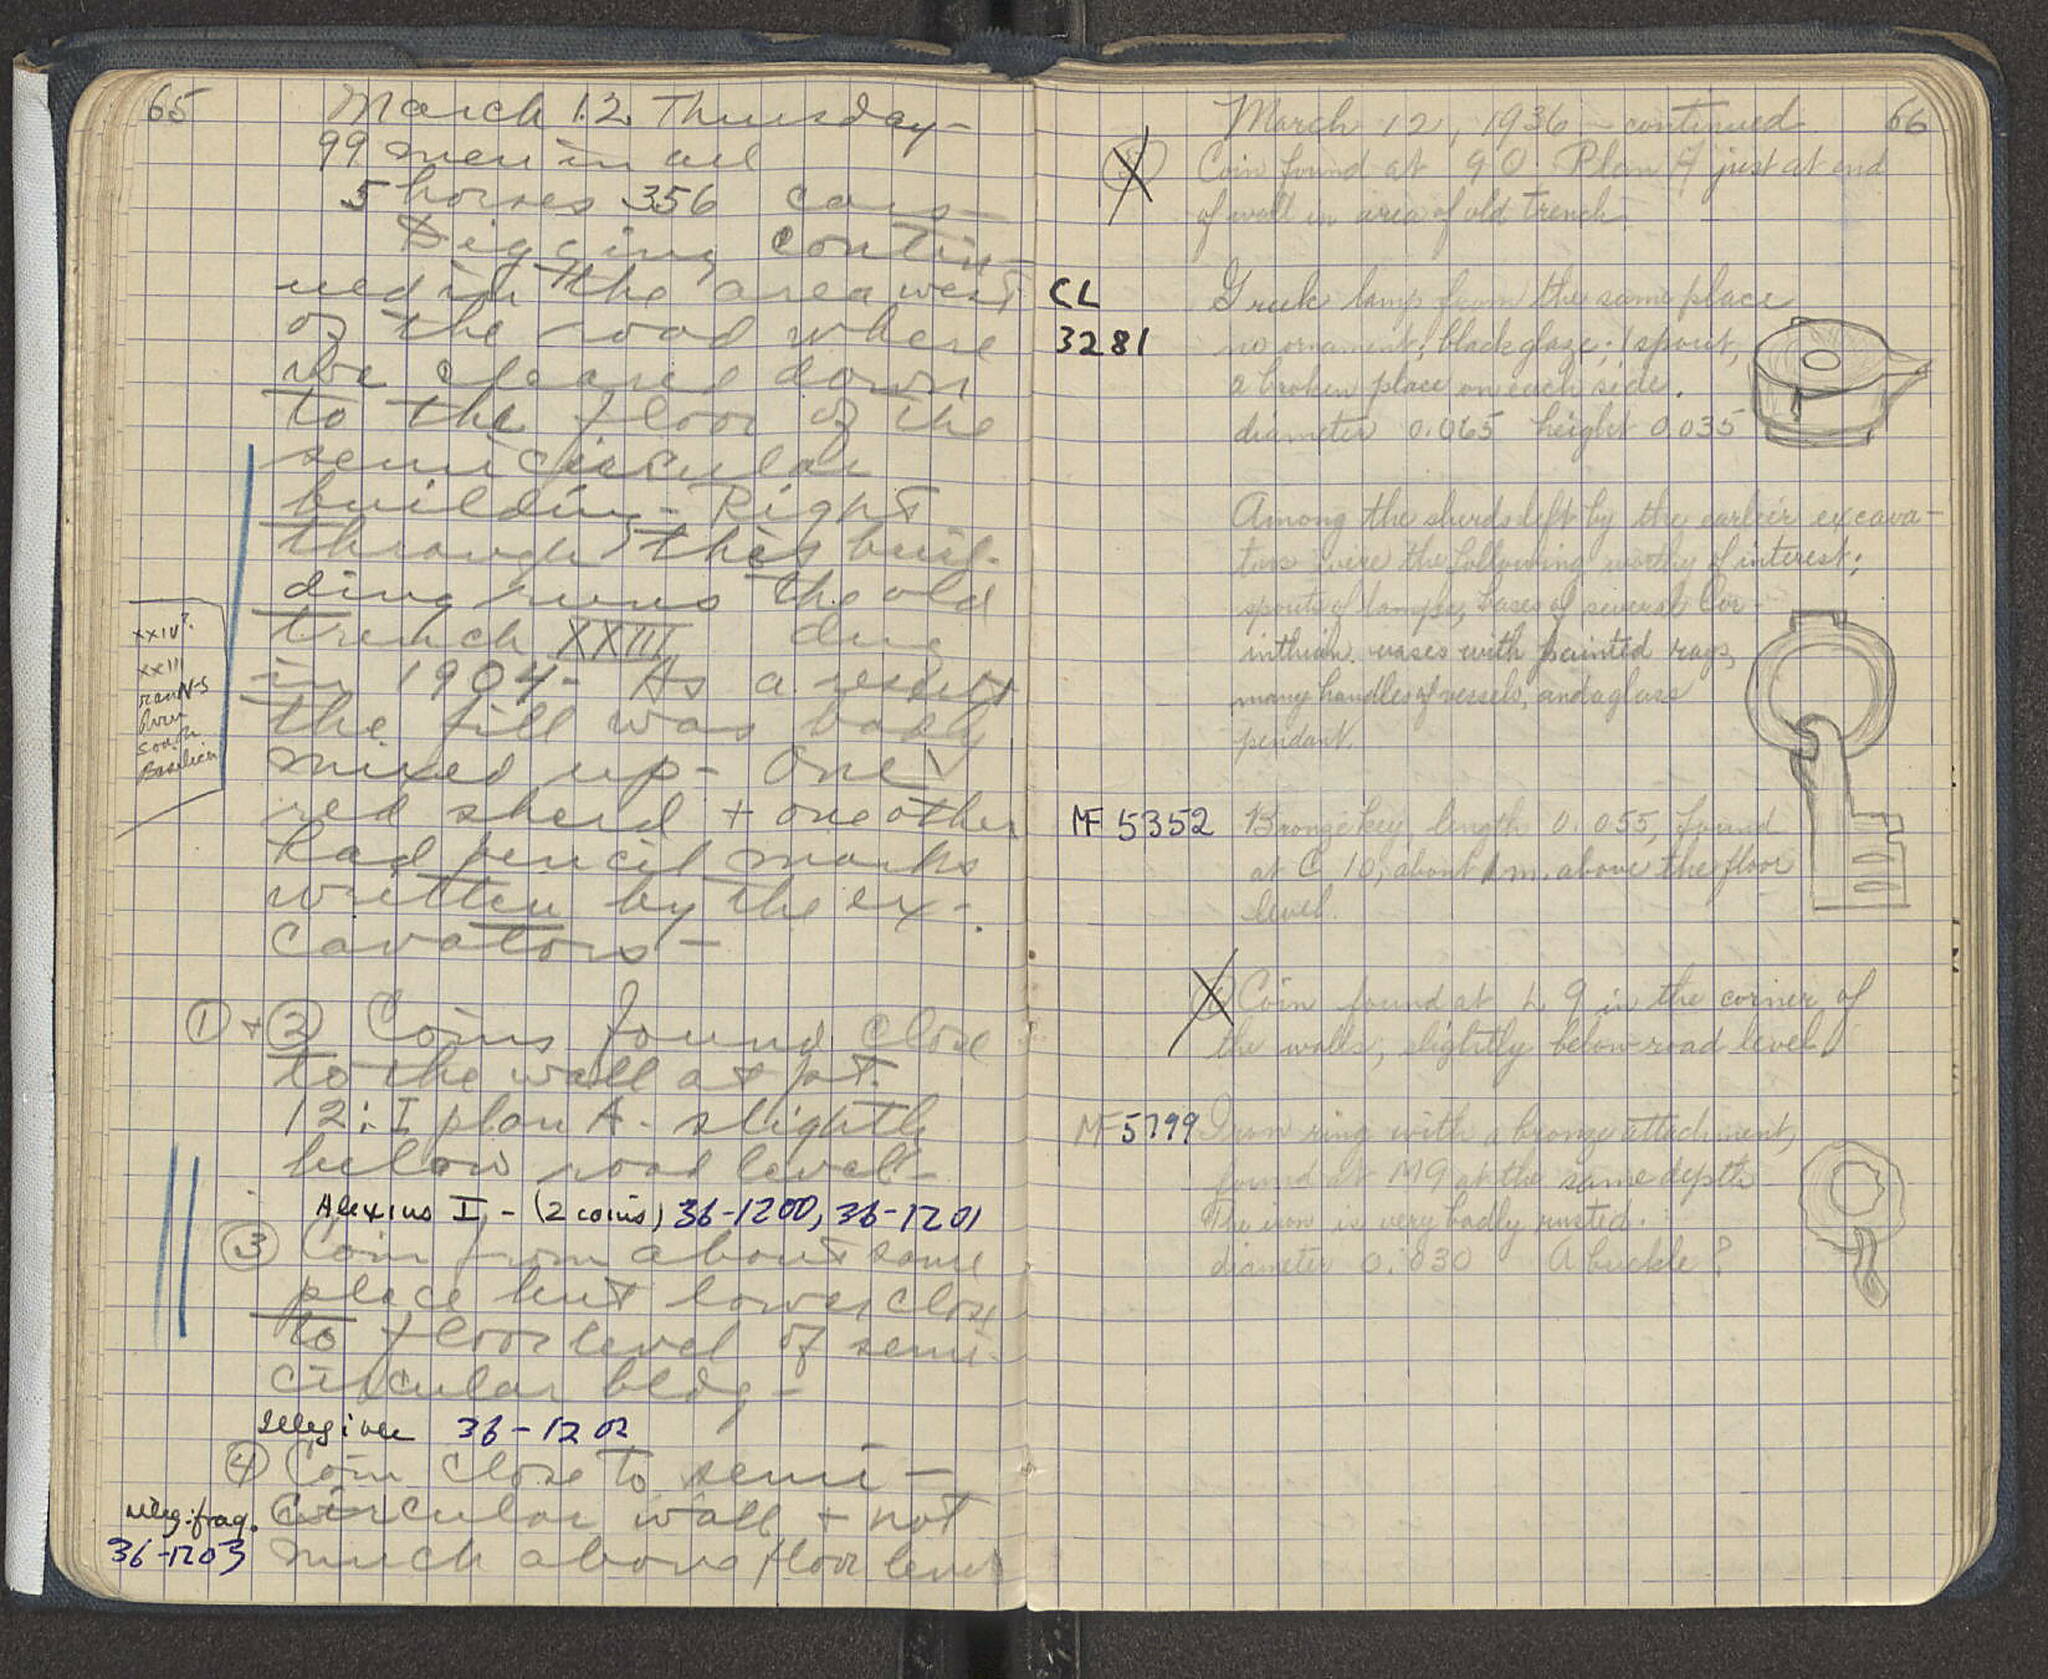 65
March 12. Thursday-
99 men in all
5 horses 356 cars-
Digging contin-
ued in the area west
of the road where
we cleared down
to the floor of the
semicircular
building- Right
through this buil-
ding runs the old
trench XXIII dug
in 1904- As a result
the fill was badly
mixed up- One
red sherd + one other
had pencil marks
written by the ex-
cavators-
XXIV?
XXIII
ran N-S
from
south
Basilica
① + ② Coins found close
to the wall at pt.
12:I plan A- slightly
below road level-
Alexius I - (2 coins) 36-1200, 36-1201
③ Coin from about same
place but lower close
to floor level of semi-
circular bldg-
Illegible 36-1202
④ Coin close to semi-
circular wall + not
much above floor level
illeg. frag.
36-1203
March 12, 1936 - continued 66
⑤ Coin found at 9 O Plan A just at end
of wall in area of old trench.
CL
3281
Greek lamp from the same place
no ornament; black glaze; 1 spout,
a broken place on each side.
diameter 0.065 height 0.035
Among the sherds left by the earlier excava-
tors were the following worthy of interest:
spouts of lamps, bases of several Cor-
inthian vases with painted rays,
many handles of vessels, and a glass
pendant.
MF 5352 Bronze key, length 0.055, found
at C 10, about 1 m. above the floor
level.
⑥ Coin found at L 9 in the corner of
the walls, slightly below road level
MF 5799 Iron ring with a bronze attachment,
found at M9 at the same depth
The iron is very badly rusted.
diameter 0.030 A buckle?